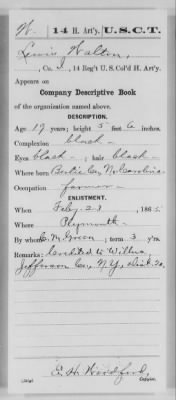 W. 14 H. Art'y. U.S.C.T.
Lewis Walton
, Co. , 14 Reg't U. S. Col'd H. Art'y.
Appears on
Company Descriptive Book
of the organization named above.
DESCRIPTION.
Age 19 years; height 5 feet 6 inches.
Complexion black
Eyes black ; hair black
Where born Bertie Co, N. Carolina
Occupation farmer
ENLISTMENT.
When Feby. 23 , 186
Where Plymouth
By whom C. M. Green ; term 3 y'rs.
Remarks: Credited to Wilna,
Jefferson Co., N.Y., Dist. 20.
E. H. Woodford
Copyist.